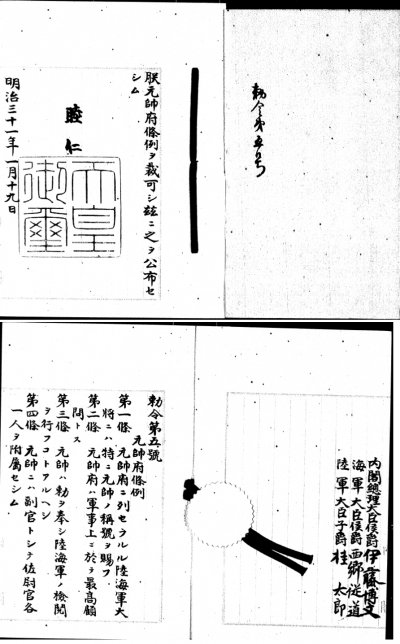 勅令第五号
朕元帥府條例ヲ裁可シ茲ニ之ヲ公布セ
シム
睦仁
天皇
御璽
明治三十一年一月十九日
内閣總理大臣侯爵伊藤博文
海軍大臣侯爵西郷従道
陸軍大臣子爵桂太郎
勅令第五號
元帥府條例
第一條 元帥府ニ列セラルル陸海軍大
将ニハ特ニ元帥ノ稱號ヲ賜フ
第二條 元帥府ハ軍事上ニ於テ最高顧
問トス
第三條 元帥ハ勅ヲ奉シ陸海軍ノ檢閲
ヲ行フコトアルヘシ
第四條 元帥ニハ副官トシテ佐尉官各
一人ヲ附屬セシム